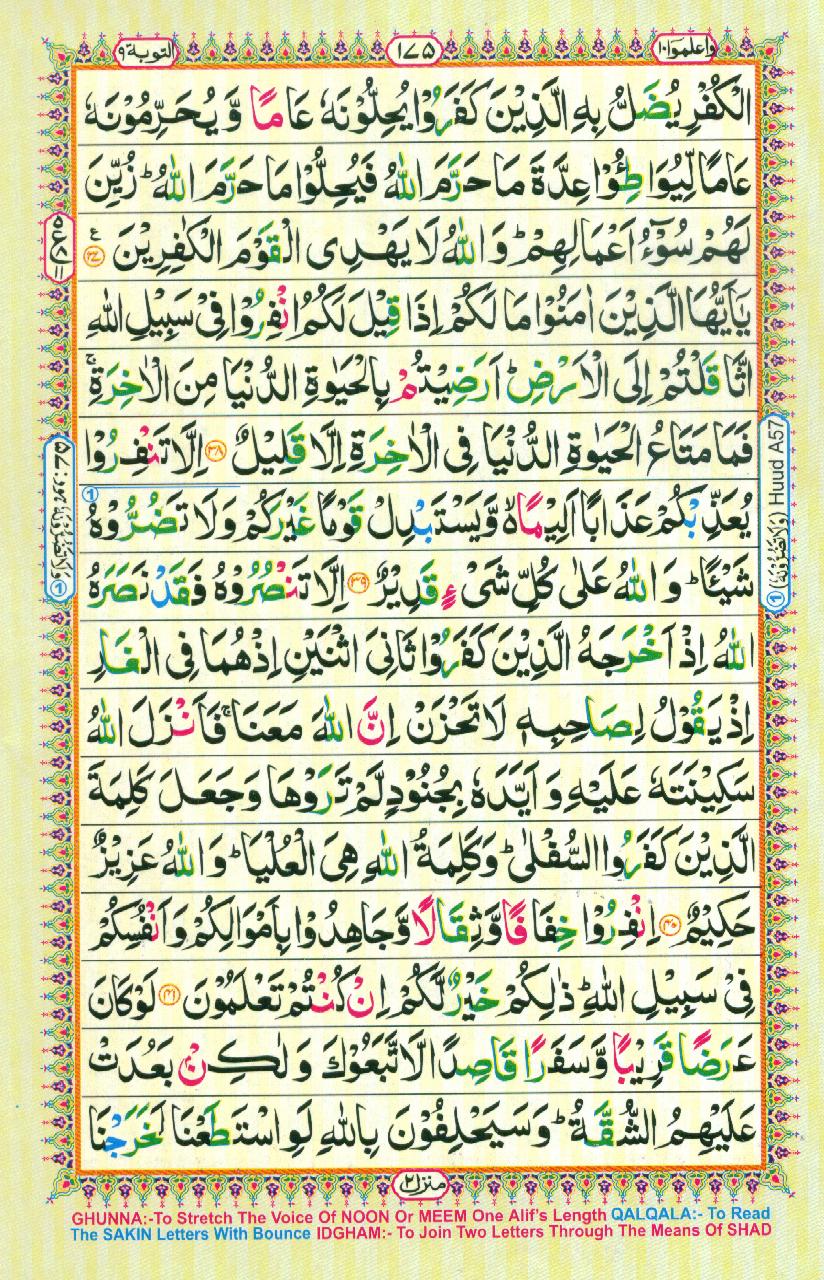 واعلموا۱۰ ۱۷۵ التوبة۹
الْكُفْرِ يُضَلُّ بِهِ الَّذِيْنَ كَفَرُوْا يُحِلُّوْنَهٗ عَامًا وَّ يُحَرِّمُوْنَهٗ
عَامًا لِّيُوَاطِـُٔوْا عِدَّةَ مَا حَرَّمَ اللّٰهُ فَيُحِلُّوْا مَا حَرَّمَ اللّٰهُ ؕ زُيِّنَ
لَهُمْ سُوْٓءُ اَعْمَالِهِمْ ؕ وَ اللّٰهُ لَا يَهْدِى الْقَوْمَ الْكٰفِرِيْنَ ۳۷ ع
يٰۤاَيُّهَا الَّذِيْنَ اٰمَنُوْا مَا لَكُمْ اِذَا قِيْلَ لَكُمُ انْفِرُوْا فِىْ سَبِيْلِ اللّٰهِ
اثَّا قَلْتُمْ اِلَى الْاَرْضِ ؕ اَرَضِيْتُمْ بِالْحَيٰوةِ الدُّنْيَا مِنَ الْاٰخِرَةِ ۚ
فَمَا مَتَاعُ الْحَيٰوةِ الدُّنْيَا فِى الْاٰخِرَةِ اِلَّا قَلِيْلٌ ۳۸ اِلَّا تَنْفِرُوْا
يُعَذِّبْكُمْ عَذَابًا اَلِيْمًا ۙ وَّ يَسْتَبْدِلْ قَوْمًا غَيْرَكُمْ وَلَا تَضُرُّوْهُ
شَيْـًٔا ؕ وَ اللّٰهُ عَلٰى كُلِّ شَىْءٍ قَدِيْرٌ ۳۹ اِلَّا تَنْصُرُوْهُ فَقَدْ نَصَرَهُ
اللّٰهُ اِذْ اَخْرَجَهُ الَّذِيْنَ كَفَرُوْا ثَانِىَ اثْنَيْنِ اِذْ هُمَا فِى الْغَارِ
اِذْ يَقُوْلُ لِصَاحِبِهٖ لَا تَحْزَنْ اِنَّ اللّٰهَ مَعَنَا ۚ فَاَنْزَلَ اللّٰهُ
سَكِيْنَتَهٗ عَلَيْهِ وَ اَيَّدَهٗ بِجُنُوْدٍ لَّمْ تَرَوْهَا وَجَعَلَ كَلِمَةَ
الَّذِيْنَ كَفَرُوا السُّفْلٰى ؕ وَكَلِمَةُ اللّٰهِ هِىَ الْعُلْيَا ؕ وَ اللّٰهُ عَزِيْزٌ
حَكِيْمٌ ۴۰ اِنْفِرُوْا خِفَافًا وَّ ثِقَالًا وَّ جَاهِدُوْا بِاَمْوَالِكُمْ وَ اَنْفُسِكُمْ
فِىْ سَبِيْلِ اللّٰهِ ؕ ذٰلِكُمْ خَيْرٌ لَّكُمْ اِنْ كُنْتُمْ تَعْلَمُوْنَ ۴۱ لَوْ كَانَ
عَرَضًا قَرِيْبًا وَّ سَفَرًا قَاصِدًا لَّاتَّبَعُوْكَ وَ لٰكِنْۢ بَعُدَتْ
عَلَيْهِمُ الشُّقَّةُ ؕ وَ سَيَحْلِفُوْنَ بِاللّٰهِ لَوِ اسْتَطَعْنَا لَخَرَجْنَا
منزل۲
① Huud A57
GHUNNA:-To Stretch The Voice Of NOON Or MEEM One Alif's Length QALQALA:- To Read
The SAKIN Letters With Bounce IDGHAM:- To Join Two Letters Through The Means Of SHAD